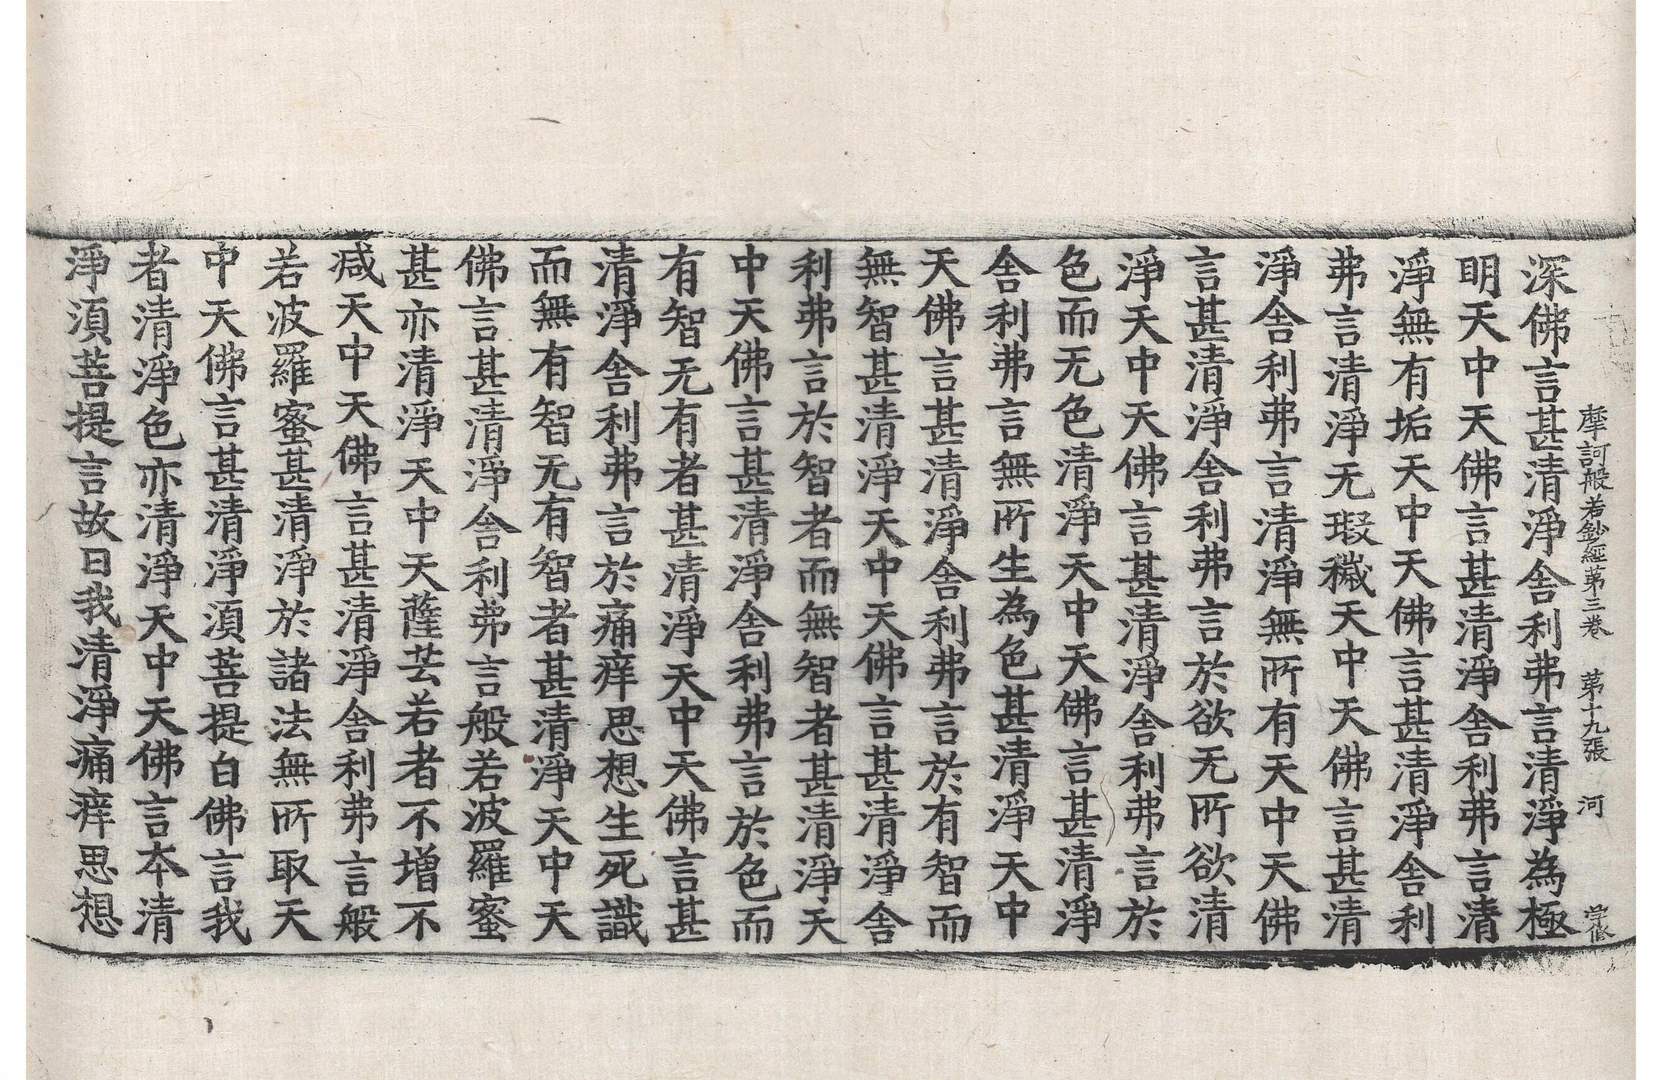 摩訶般若鈔經苐三卷 苐十九張 河
深佛言甚清淨舍利弗言清淨為極
明天中天佛言甚清淨舍利弗言清
淨無有垢天中天佛言甚清淨舍利
弗言清淨无瑕穢天中天佛言甚清
淨舍利弗言清淨無所有天中天佛
言甚清淨舍利弗言於欲无所欲清
淨天中天佛言甚清淨舍利弗言於
色而无色清淨天中天佛言甚清淨
舍利弗言無所生為色甚清淨天中
天佛言甚清淨舍利弗言於有智而
無智甚清淨天中天佛言甚清淨舍
利弗言於智者而無智者甚清淨天
中天佛言甚清淨舍利弗言於色而
有智无有者甚清淨天中天佛言甚
清淨舍利弗言於痛痒思想生死識
而無有智无有智者甚清淨天中天
佛言甚清淨舍利弗言般若波羅蜜
甚亦清淨天中天薩芸若者不增不
减天中天佛言甚清淨舍利弗言般
若波羅蜜甚清淨於諸法無所取天
中天佛言甚清淨須菩提白佛言我
者清淨色亦清淨天中天佛言本清
淨須菩提言故曰我清淨痛痒思想